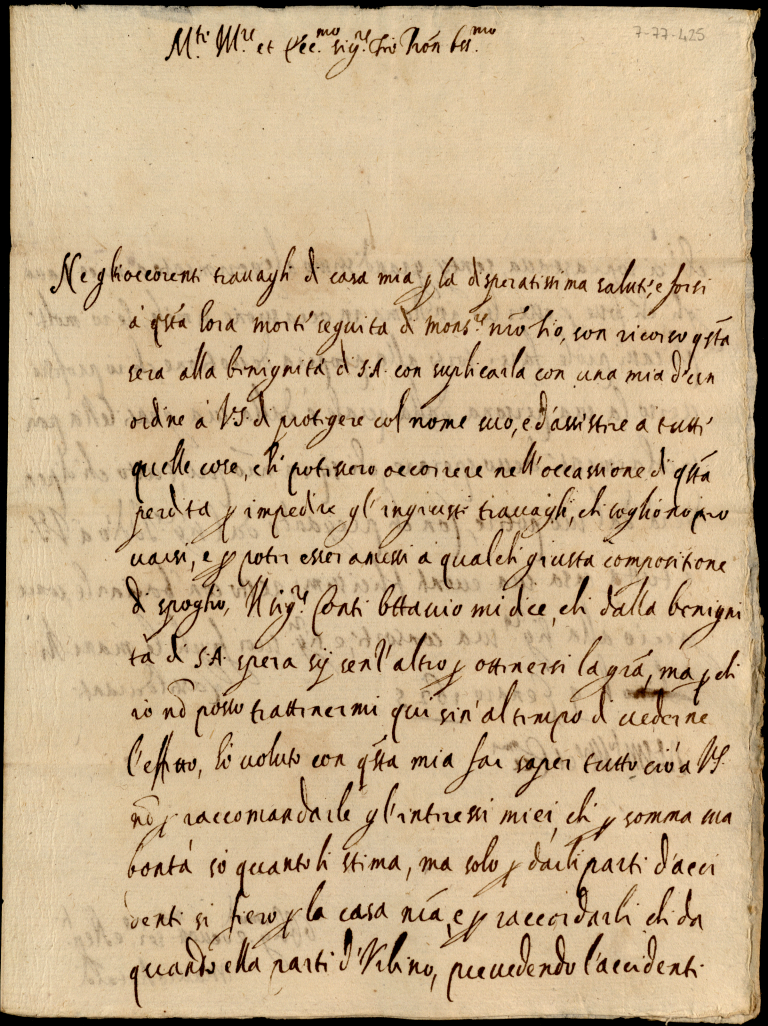 7-77-425
M.to Ill.re et Ecc.mo Sig.re P.ron Oss.mo
Ne gli occorenti trauagli di casa mia p la disperatissima salute, e forsi
à q.sta hora morte seguita di Mons.re n.ro tio, son ricorso q.sta
sera alla benignità di S.A. con suplicarla con una mia d'un
ordine à V.S. di protegere col nome suo, e d'assistere a tutte
quelle cose, che potissero occorrere nell'occassione di q.sta
perdita p impedire gl'ingiusti trauagli, che sogliono pro
uarsi, e p poter esser amessi à qualche giusta compositione
di spoglio, Il sig.re Conte Ottauio mi dice, che dalla benigni
tà di S.A. spera sij senz'altro p ottenersi la gra, ma p che
io nõ posso trattenermi qui sin'al tempo di uederne
l'effetto, hò uoluto con q.sta mia far saper tutto ciò a V.S.
nõ p raccomandarle gl'interessi miei, che p somma sua
bontà sò quanto li stima, ma solo p darli parte d'acci
denti si fiero p la casa n.ra, e p raccordarli che da
quando ella parti d'Urbino, preuedendo l'accidenti